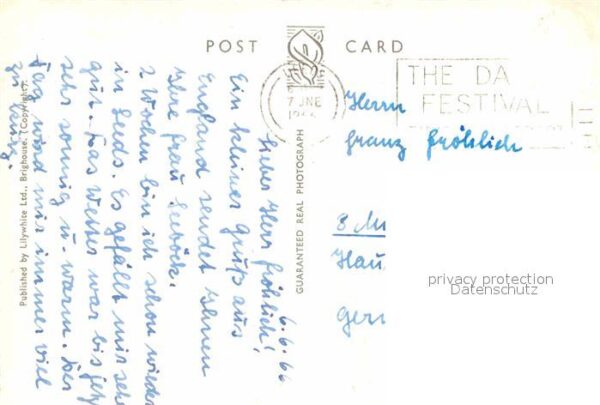 POST CARD
THE DA
FESTIVAL
7 JNE
Herrn
Franz Fröhlich
8 Mü
Hau
Ger
privacy protection
Datenschutz
GUARANTEED REAL PHOTOGRAPH
Published by Lilywhite Ltd., Brighouse. (Copyright).
6.6.66
Lieber Herr Fröhlich!
Ein kleiner Gruß aus
England sendet Ihnen
Ihre Frau
2 Wochen bin ich schon wieder
in Leeds. Es gefällt mir sehr
gut. Das Wetter war bis jetzt
sehr sonnig u. warm. Der
Tag wird mir immer viel
zu